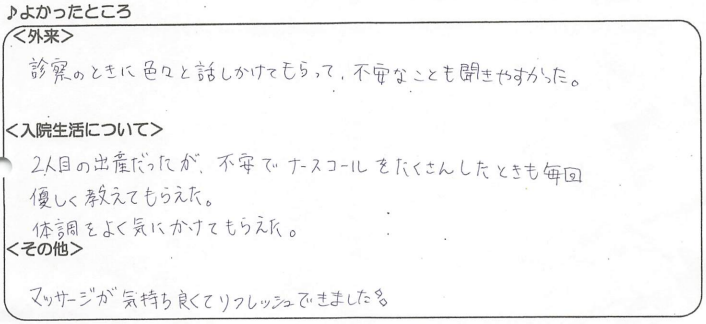 ♪よかったところ
<外来>
診察のときに色々と話しかけてもらって、不安なことも聞きやすかった。
<入院生活について>
2人目の出産だったが、不安でナースコールをたくさんしたときも毎回
優しく教えてもらえた。
体調をよく気にかけてもらえた。
<その他>
マッサージが気持ち良くてリフレッシュできました